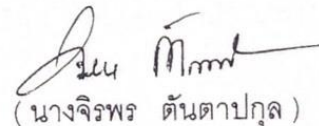 (นางจิรพร ตันตาปกุล)